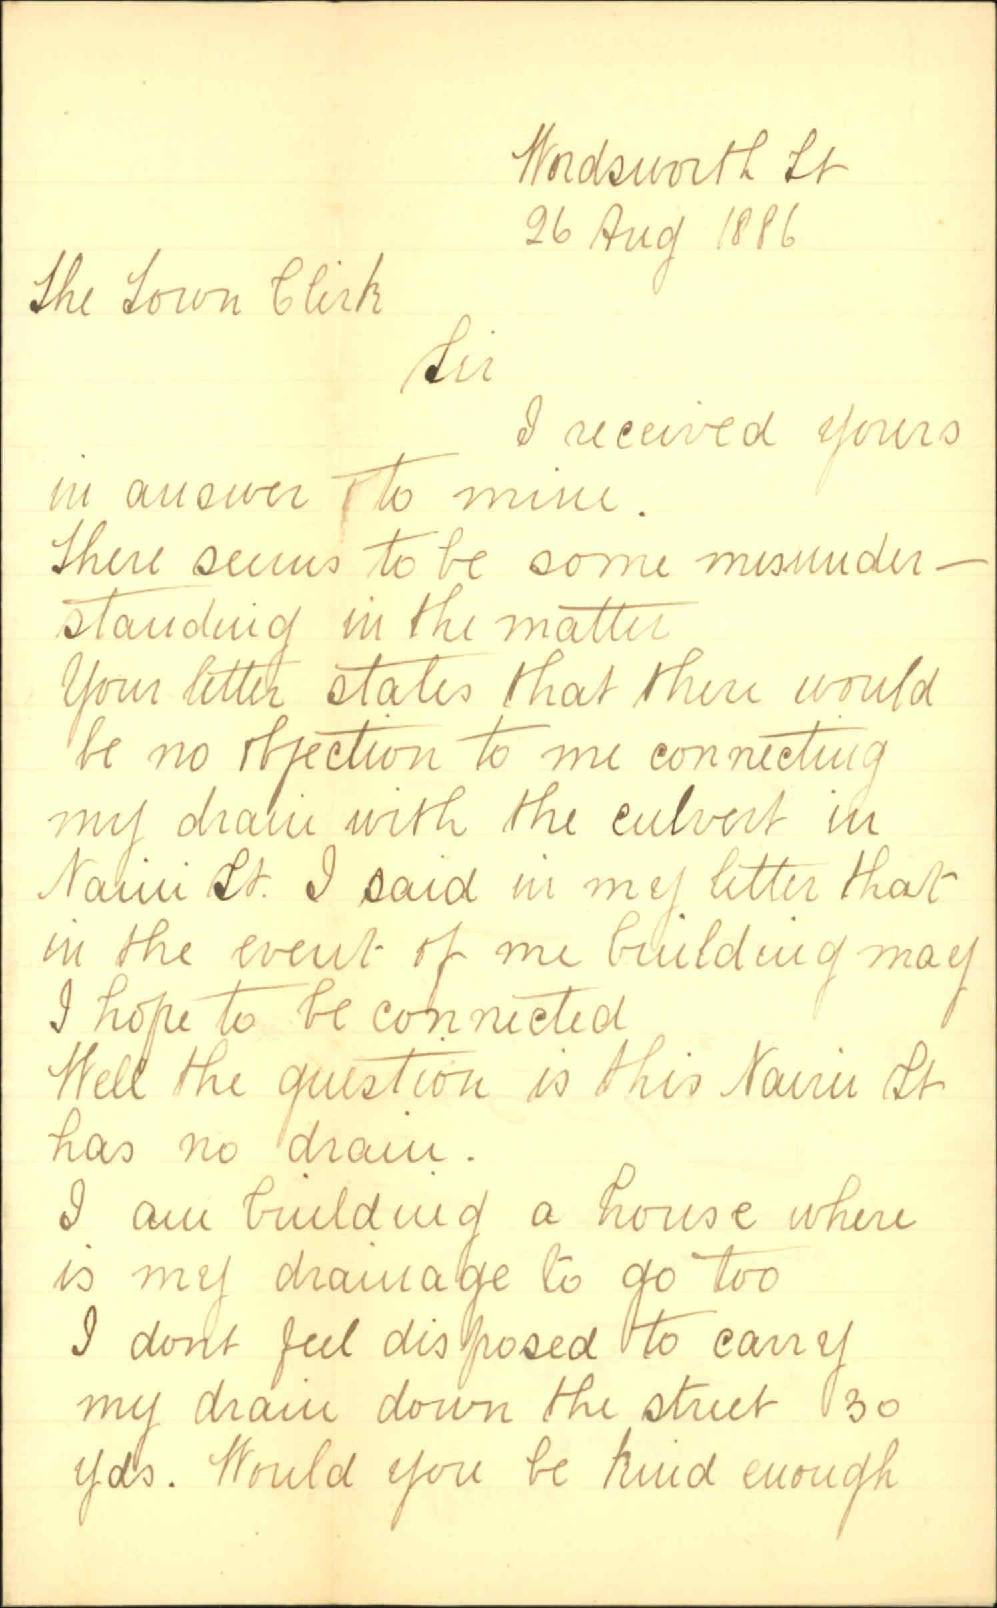 Wordsworth St
26 Aug 1886
The Town Clerk
Sir
I received yours
in answer to mine.
There seems to be some misunder-
standing in the matter
Your letter states that there would
be no objection to me connecting
my drain with the culvert in
Nairn St. I said in my letter that
in the event of me building may
I hope to be connected
Well the question is this Nairn St
has no drain.
I am building a house where
is my drainage to go too
I dont feel disposed to carry
my drain down the street 30
yds. Would you be kind enough